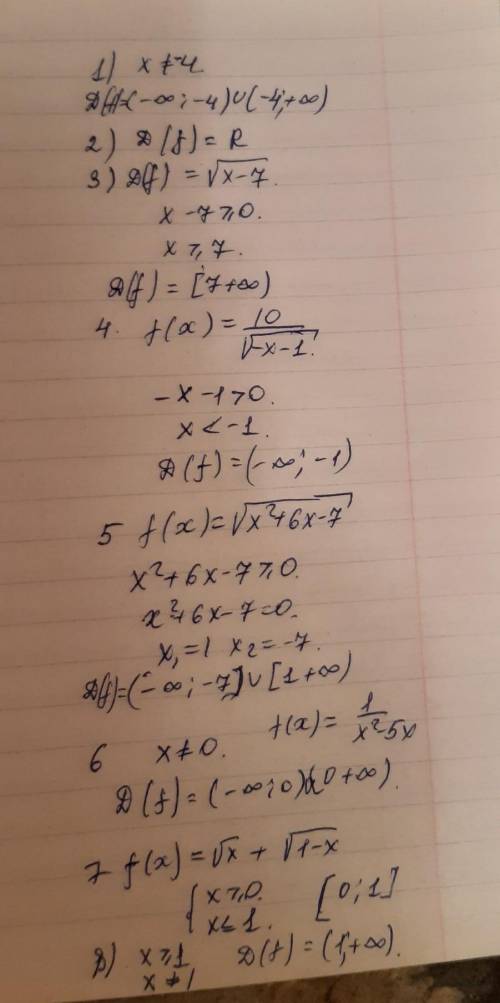 1) x ≠ -4
D(f)=(-∞; -4)∪(-4;+∞)
2) D(f) = R
3) D(f) = √x-7.
x -7 ≥ 0.
x ≥ 7.
D(f) = [7+∞)
4. f(x) = 10/√-x-1.
-x -1 > 0.
x < -1.
D(f) = (-∞; -1)
5 f(x) = √x²+6x-7
x²+6x-7 ≥ 0.
x²+6x-7=0.
x₁=1 x₂=-7.
D(f)=(-∞; -7]∪[1+∞)
6 x ≠ 0. f(x) = 1/x²-5x
D(f) = (-∞; 0) (0+∞).
7 f(x) = √x + √1-x
{ x ≥ 0. [0; 1]
x ≤ 1.
8) x ≥ 1 D(f) = (1;+∞).
x ≠ 1